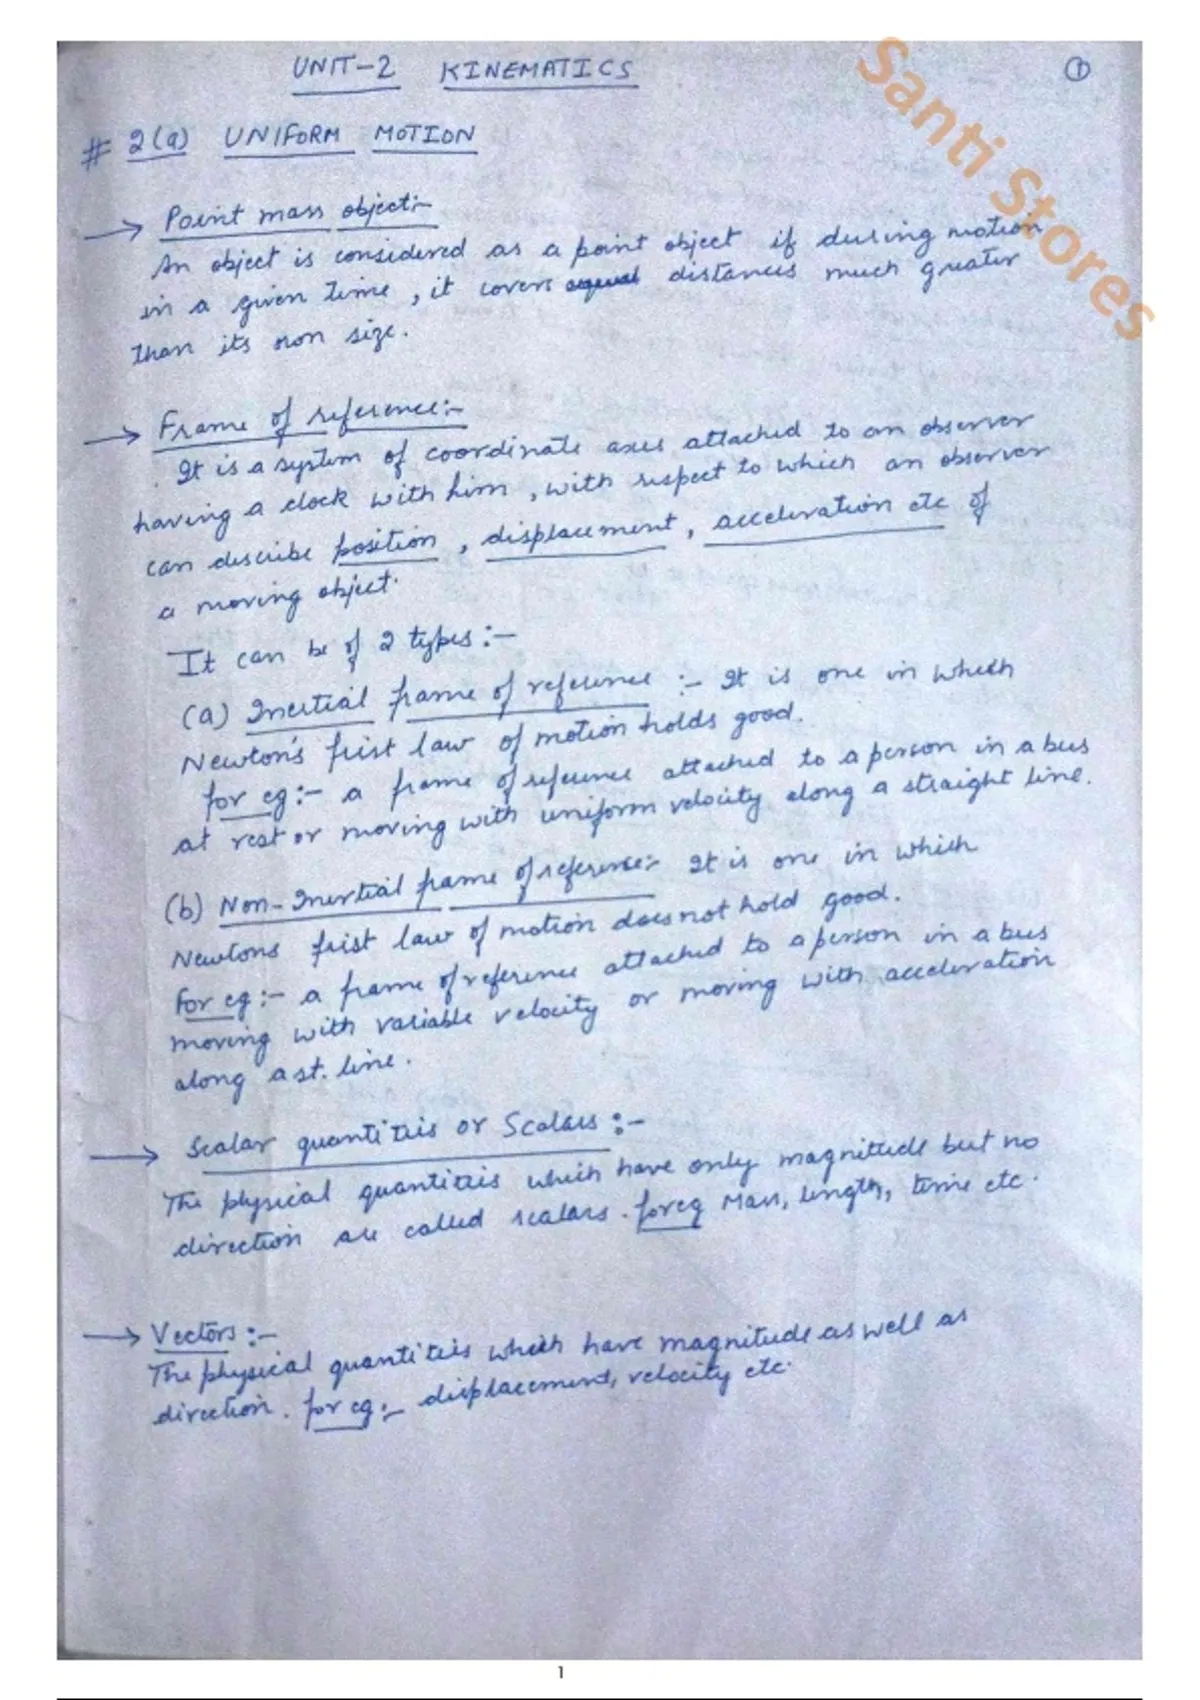 UNIT-2 KINEMATICS
1
# 2(a) UNIFORM MOTION
→ Point mass object:-
An object is considered as a point object if during motion
in a given time, it covers distances much greater
than its own size.
→ Frame of reference:-
It is a system of coordinate axes attached to an observer
having a clock with him, with respect to which an observer
can describe position, displacement, acceleration etc of
a moving object.
It can be of 2 types:-
(a) Inertial frame of reference :- It is one in which
Newton's first law of motion holds good.
for eg:- a frame of reference attached to a person in a bus
at rest or moving with uniform velocity along a straight line.
(b) Non-Inertial frame of reference:- It is one in which
Newtons first law of motion does not hold good.
For eg:- a frame of reference attached to a person in a bus
moving with variable velocity or moving with acceleration
along a st. line.
→ Scalar quantities or Scalars:-
The physical quantities which have only magnitude but no
direction are called scalars. for eg Mass, length, time etc.
→ Vectors:-
The physical quantities which have magnitude as well as
direction. for eg:- displacement, velocity etc.
Santi Stores
1